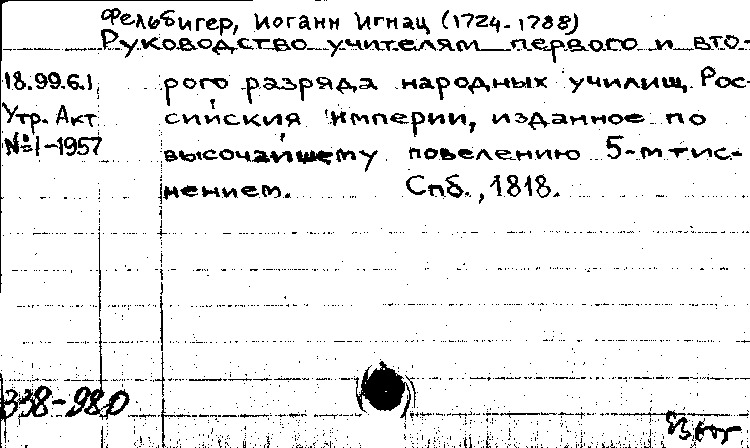 Фельбигер, Иоганн Игнац (1724-1788)
Руководство учителям первого и вто-
18.99.6.1 рого разряда народных училищ Рос-
Утр. Акт сийския империи, изданное по
№1-1957 высочайшему повелению 5-м тис-
нением. Спб., 1818.
338-980